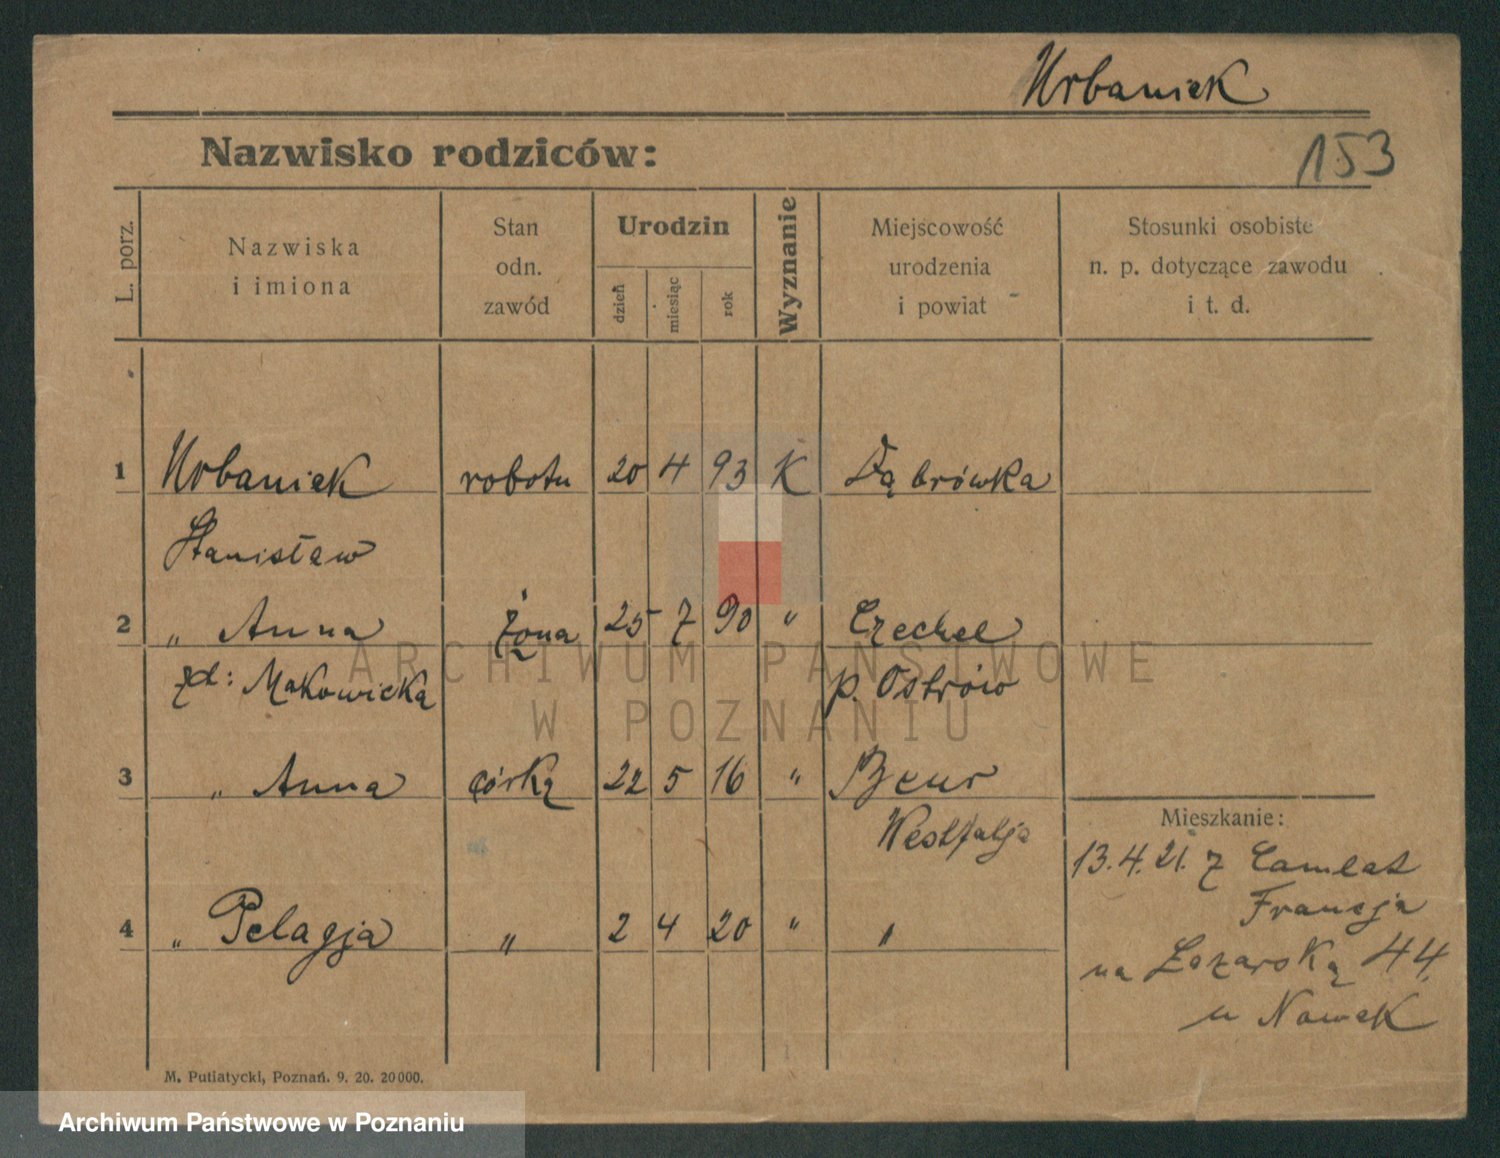 Urbaniek
Nazwisko rodziców:
153
L. porz.
Nazwiska
i imiona
Stan
odn.
zawód
Urodzin
dzień
miesiąc
rok
Wyznanie
Miejscowość
urodzenia
i powiat
Stosunki osobiste
n. p. dotyczące zawodu
i t. d.
1 Urbaniek robotn 20 4 93 K Dąbrówka
Stanisław
2 „ Anna żona 25 7 90 „ Czechel
zd: Makowicka p. Ostrów
3 „ Anna córka 22 5 16 „
Westfalja
Mieszkanie:
13.4.21. z
Francja
4 „ Pelagja „ 2 4 20 „ „
na Łazarską 44
u Nowak
M. Putiatycki, Poznań. 9. 20. 20000.
ARCHIWUM PAŃSTWOWE
W POZNANIU
Archiwum Państwowe w Poznaniu